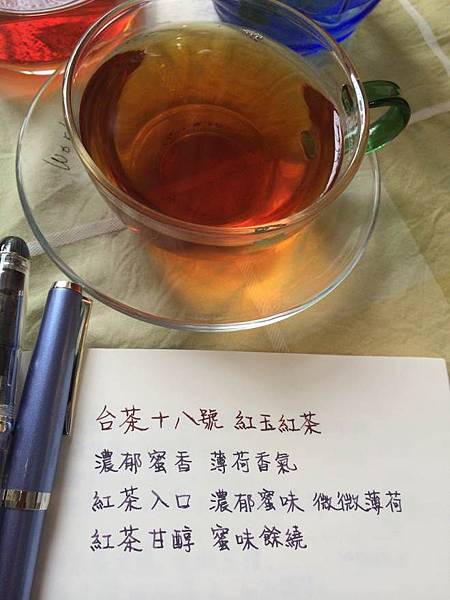 台茶十八號 紅玉紅茶
濃郁蜜香 薄荷香氣
紅茶入口 濃郁蜜味 微微薄荷
紅茶甘醇 蜜味餘繞